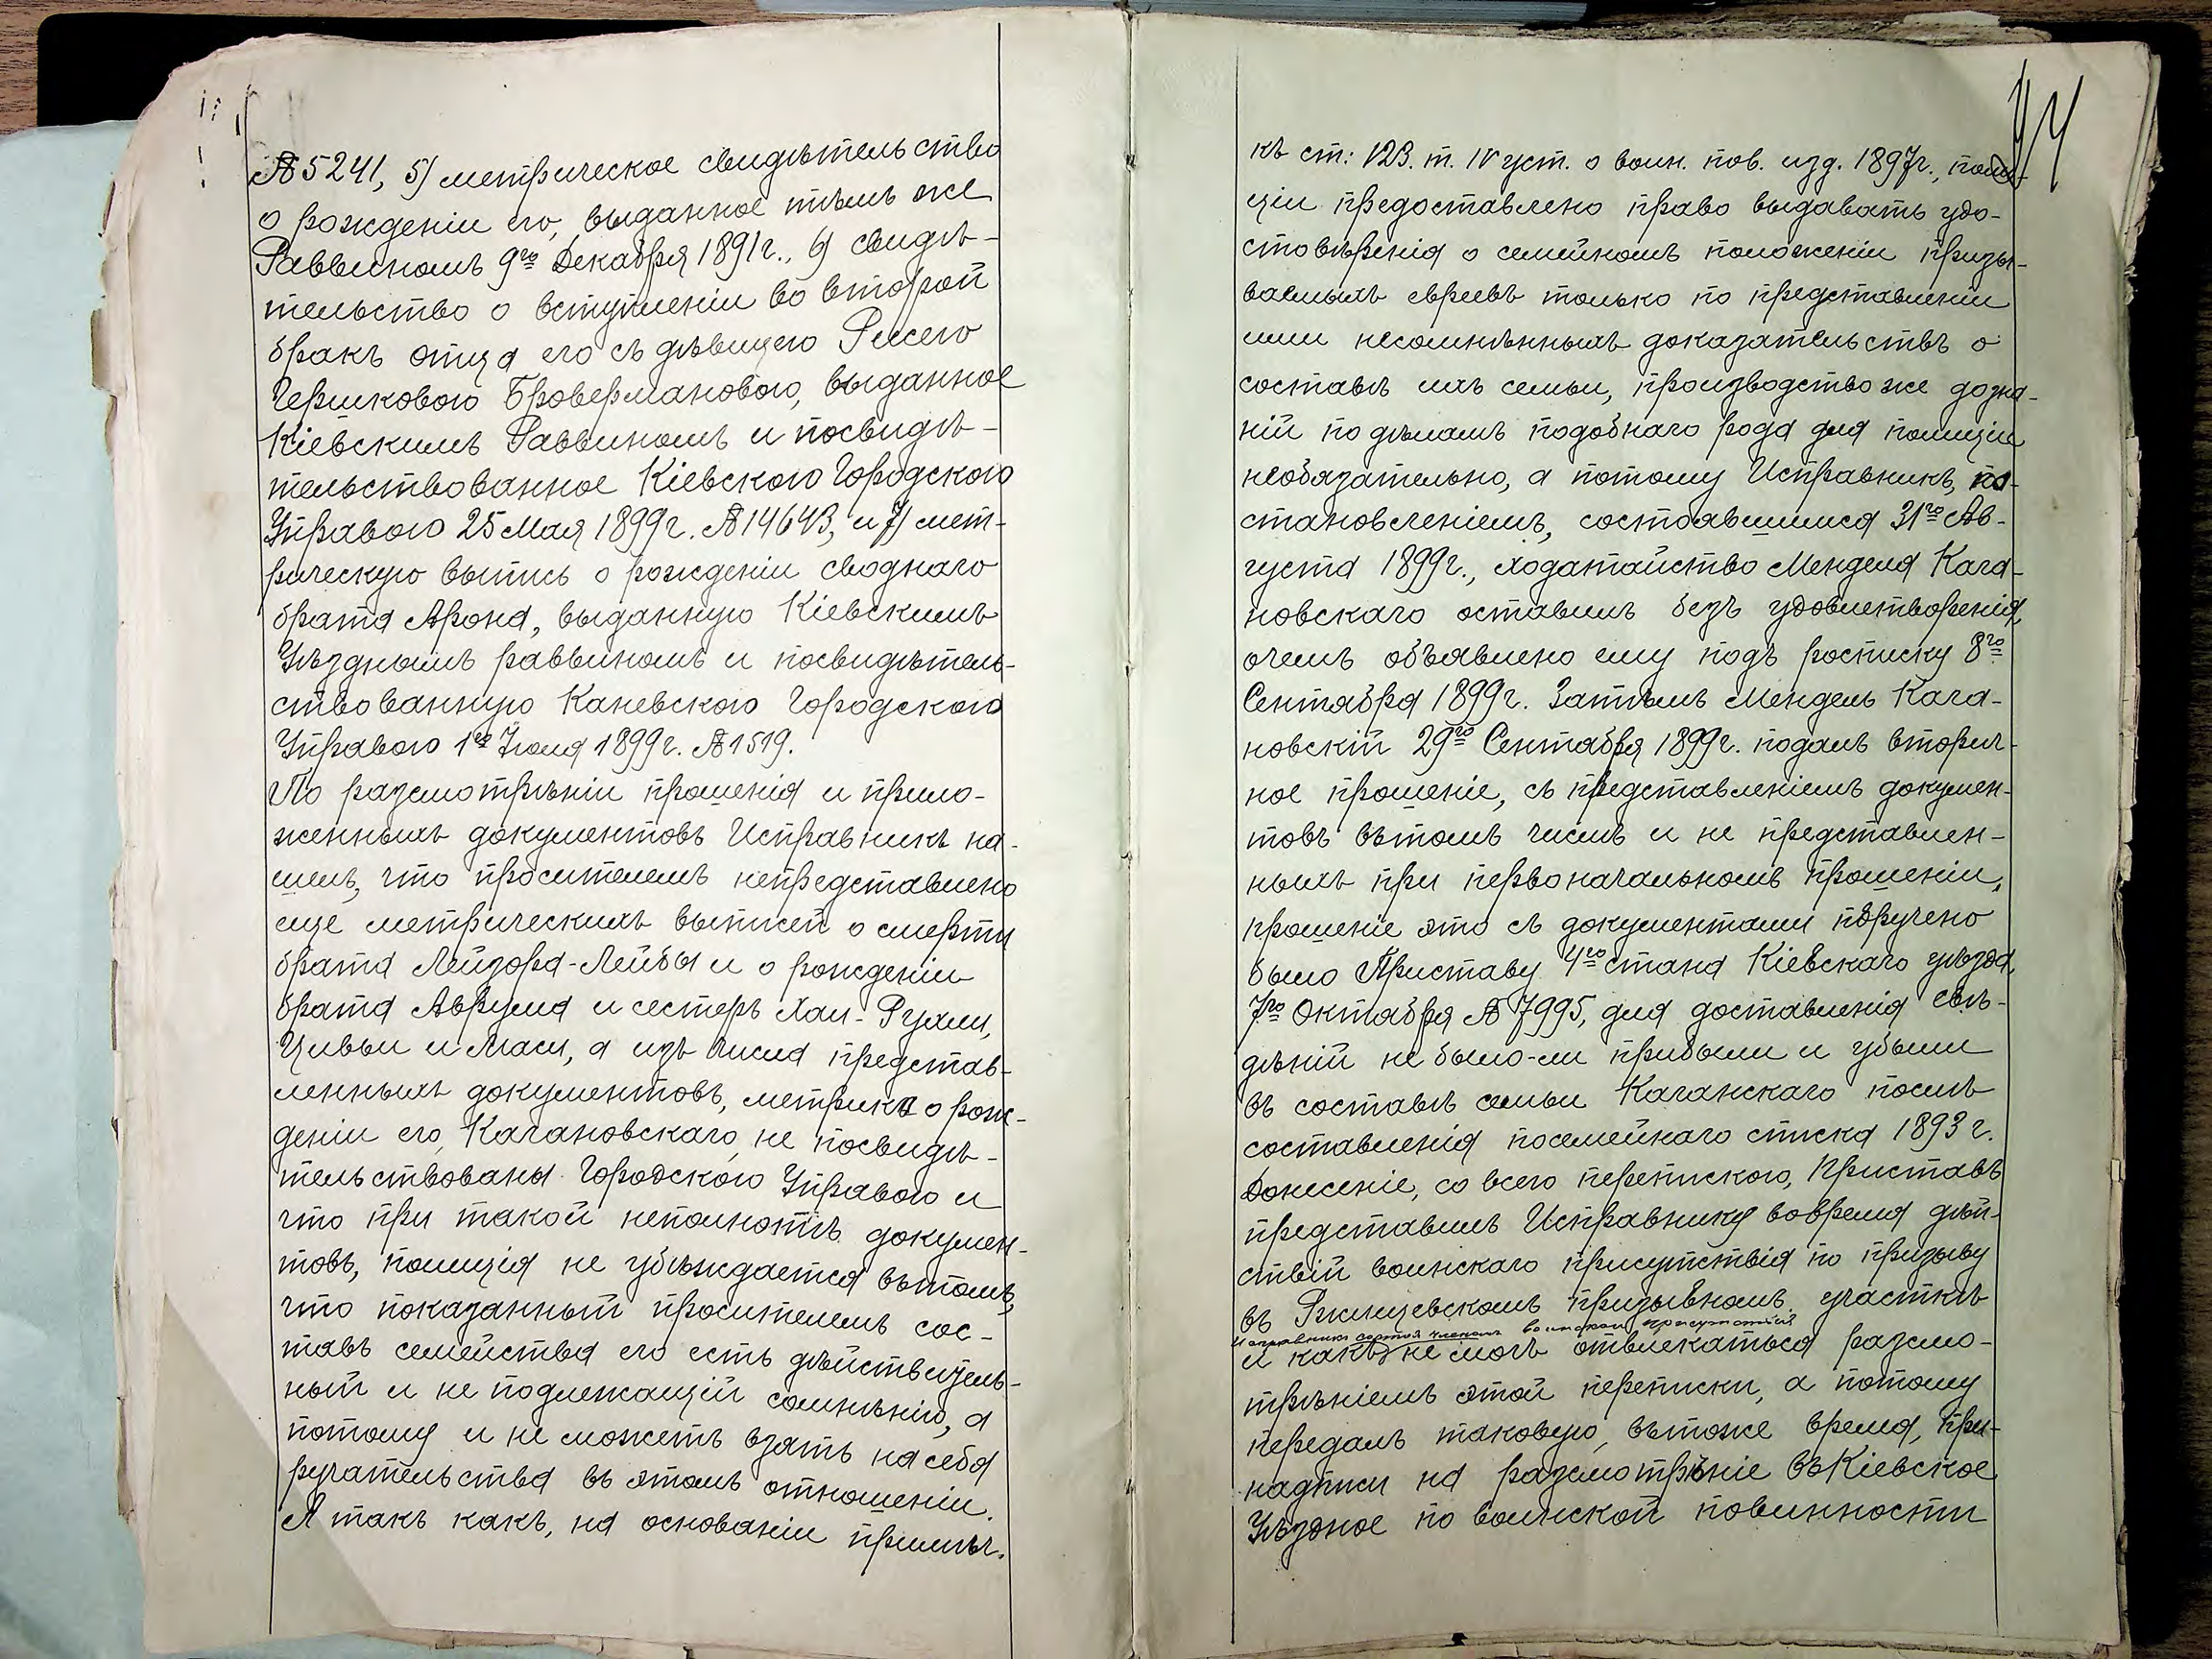 № 5241, 5) метрическое свидѣтельство
о рожденіи его, выданное тѣмъ же
Раввиномъ 9го Декабря 1891 г., 6) свидѣ-
тельство о вступленіи во второй
бракъ отца его съ дѣвицею Рисею
Гершковою Бровермановою, выданное
Кіевскимъ Раввиномъ и посвидѣ-
тельствованное Кіевскою Городскою
Управою 25 Мая 1899 г. № 14643, и 7) мет-
рическую выпись о рожденіи своднаго
брата Арона, выданную Кіевскимъ
Уѣзднымъ раввиномъ и посвидѣтель-
ствованную Каневскою Городскою
Управою 1го Іюля 1899 г. № 1519.
По разсмотрѣніи прошенія и прило-
женныхъ документовъ Исправникъ на-
шелъ, что просителемъ непредставлено
еще метрическихъ выписей о смерти
брата Лейзора-Лейбы и о рожденіи
брата Аврума и сестеръ Хаи-Рухли,
Цивьи и Маси, а изъ числа представ-
ленныхъ документовъ, метрика о рож-
деніи его, Качановскаго, не посвидѣ-
тельствованы Городскою Управою и
что при такой неполнотѣ докумен-
товъ, полиція не убѣждается вътомъ,
что показанный просителемъ сос-
тавъ семейства его есть дѣйствитель-
ный и не подлежащій сомнѣнію, а
потому и не можетъ взять на себя
ручательства въ этомъ отношеніи.
А такъ какъ, на основаніи примѣч.
94
къ ст: 123. т. IV уст. о воин. пов. изд. 1897 г., поли-
ціи предоставлено право выдавать удо-
стовѣренія о семейномъ положеніи призы-
ваемыхъ евреевъ только по представленіи
ими несомнѣнныхъ доказательствъ о
составѣ ихъ семьи, производство же дозна-
ній по дѣламъ подобнаго рода для полиціи
необязательно, а потому Исправникъ, по-
становленіемъ, состоявшимся 31го Ав-
густа 1899 г., ходатайство Менделя Кача-
новскаго оставилъ безъ удовлетворенія,
очемъ объявлено ему подъ росписку 8го
Сентября 1899 г. Затѣмъ Мендель Кача-
новскій 29го Сентября 1899 г. подалъ вторич-
ное прошеніе, съ представленіемъ докумен-
товъ вътомъ числѣ и не представлен-
ныхъ при первоначальномъ прошеніи,
прошеніе это съ документами поручено
было Приставу 4го стана Кіевскаго уѣзда,
7го Октября № 7995, для доставленія свѣ-
дѣній не было-ли прибыли и убыли
въ составѣ семьи Качанскаго послѣ
составленія посемейнаго списка 1893 г.
Донесеніе, со всею перепискою, Приставъ
представилъ Исправнику вовремя дѣй-
ствій воинскаго присутствія по призыву
въ Ржищевскомъ призывномъ участкѣ
Исправникъ состоя членомъ воинскаго присутствія
и какъ не могъ отвлекаться разсмо-
трѣніемъ этой переписки, а потому
передалъ таковую, вътоже время, при
надписи на разсмотрѣніе въ Кіевское
Уѣздное по воинской повинности